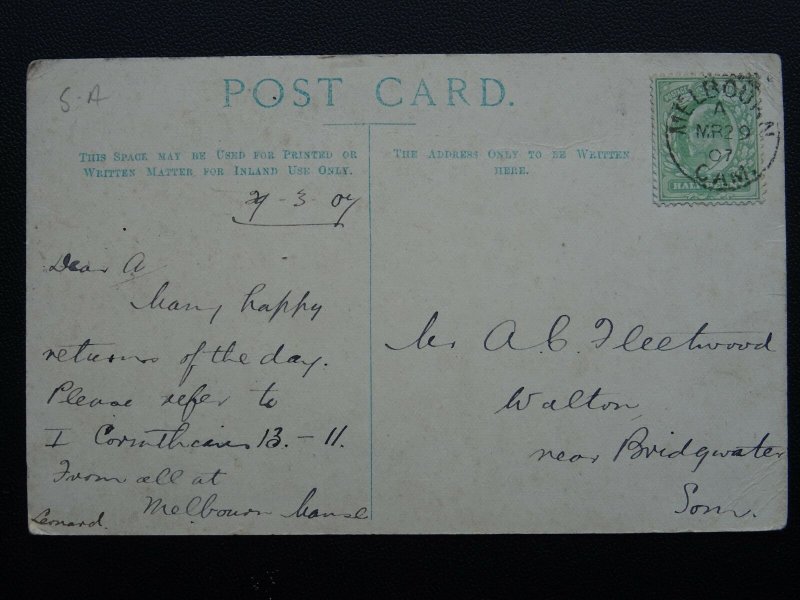 S-A
POST CARD.
THIS SPACE MAY BE USED FOR PRINTED OR
WRITTEN MATTER FOR INLAND USE ONLY.
THE ADDRESS ONLY TO BE WRITTEN
HERE.
MELBOURN
A
MR 29
07
CAM.
HALF
29-3-07
Dear A
Many happy
returns of the day.
Please refer to
I Corinthians 13.-11.
From all at
Melbourn Manse
Leonard.
Mr A. C. Fleetwood
Walton
near Bridgwater
Som.